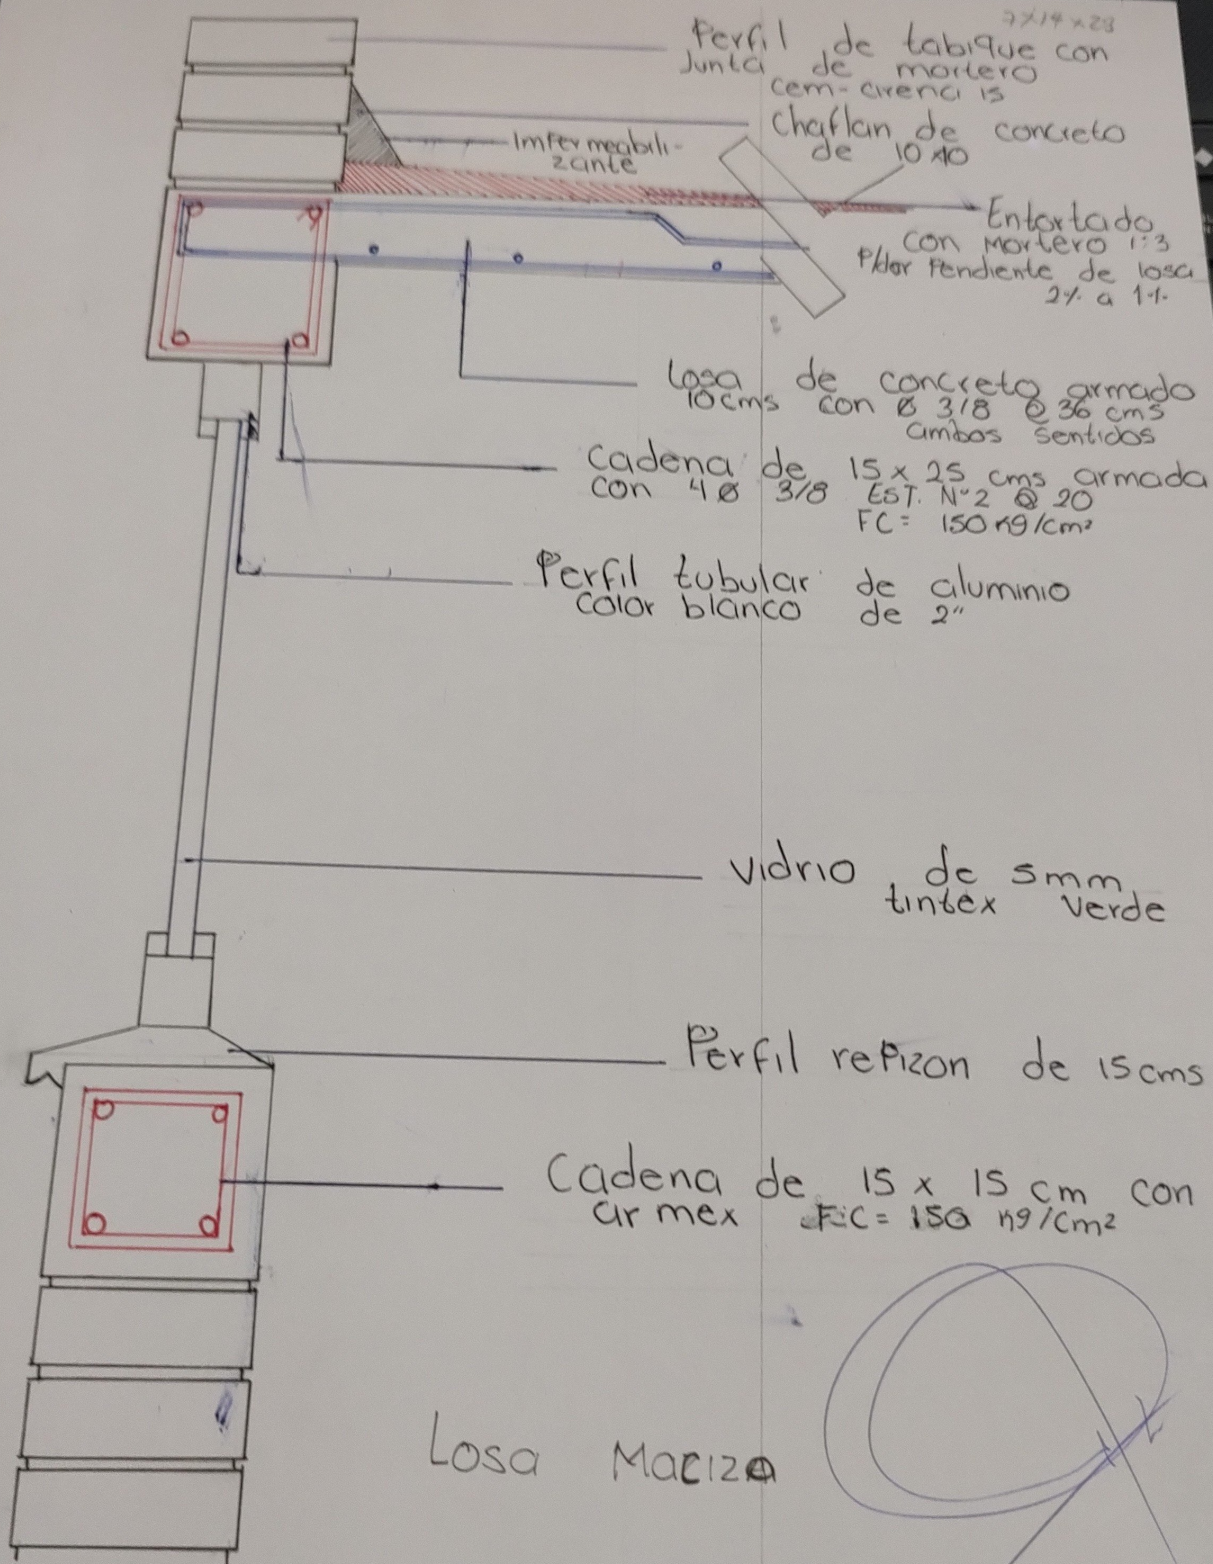 7x14x28
Perfil de tabique con
Junta de mortero
cem-arena 15
Chaflan de concreto
de 10x10
Impermeabili-
zante
Entortado
con mortero 1:3
P/dar Pendiente de losa
2% a 1%
Losa de concreto armado
10cms con Ø 3/8 @ 36 cms
ambos sentidos
Cadena de 15 x 25 cms armada
con 4 Ø 3/8 EST. Nº2 @ 20
FC= 150 Kg/cm²
Perfil tubular de aluminio
color blanco de 2"
Vidrio de 5mm
tintex verde
Perfil repizon de 15cms
Cadena de 15 x 15 cm con
armex F:C= 150 Kg/cm²
Losa Maciza